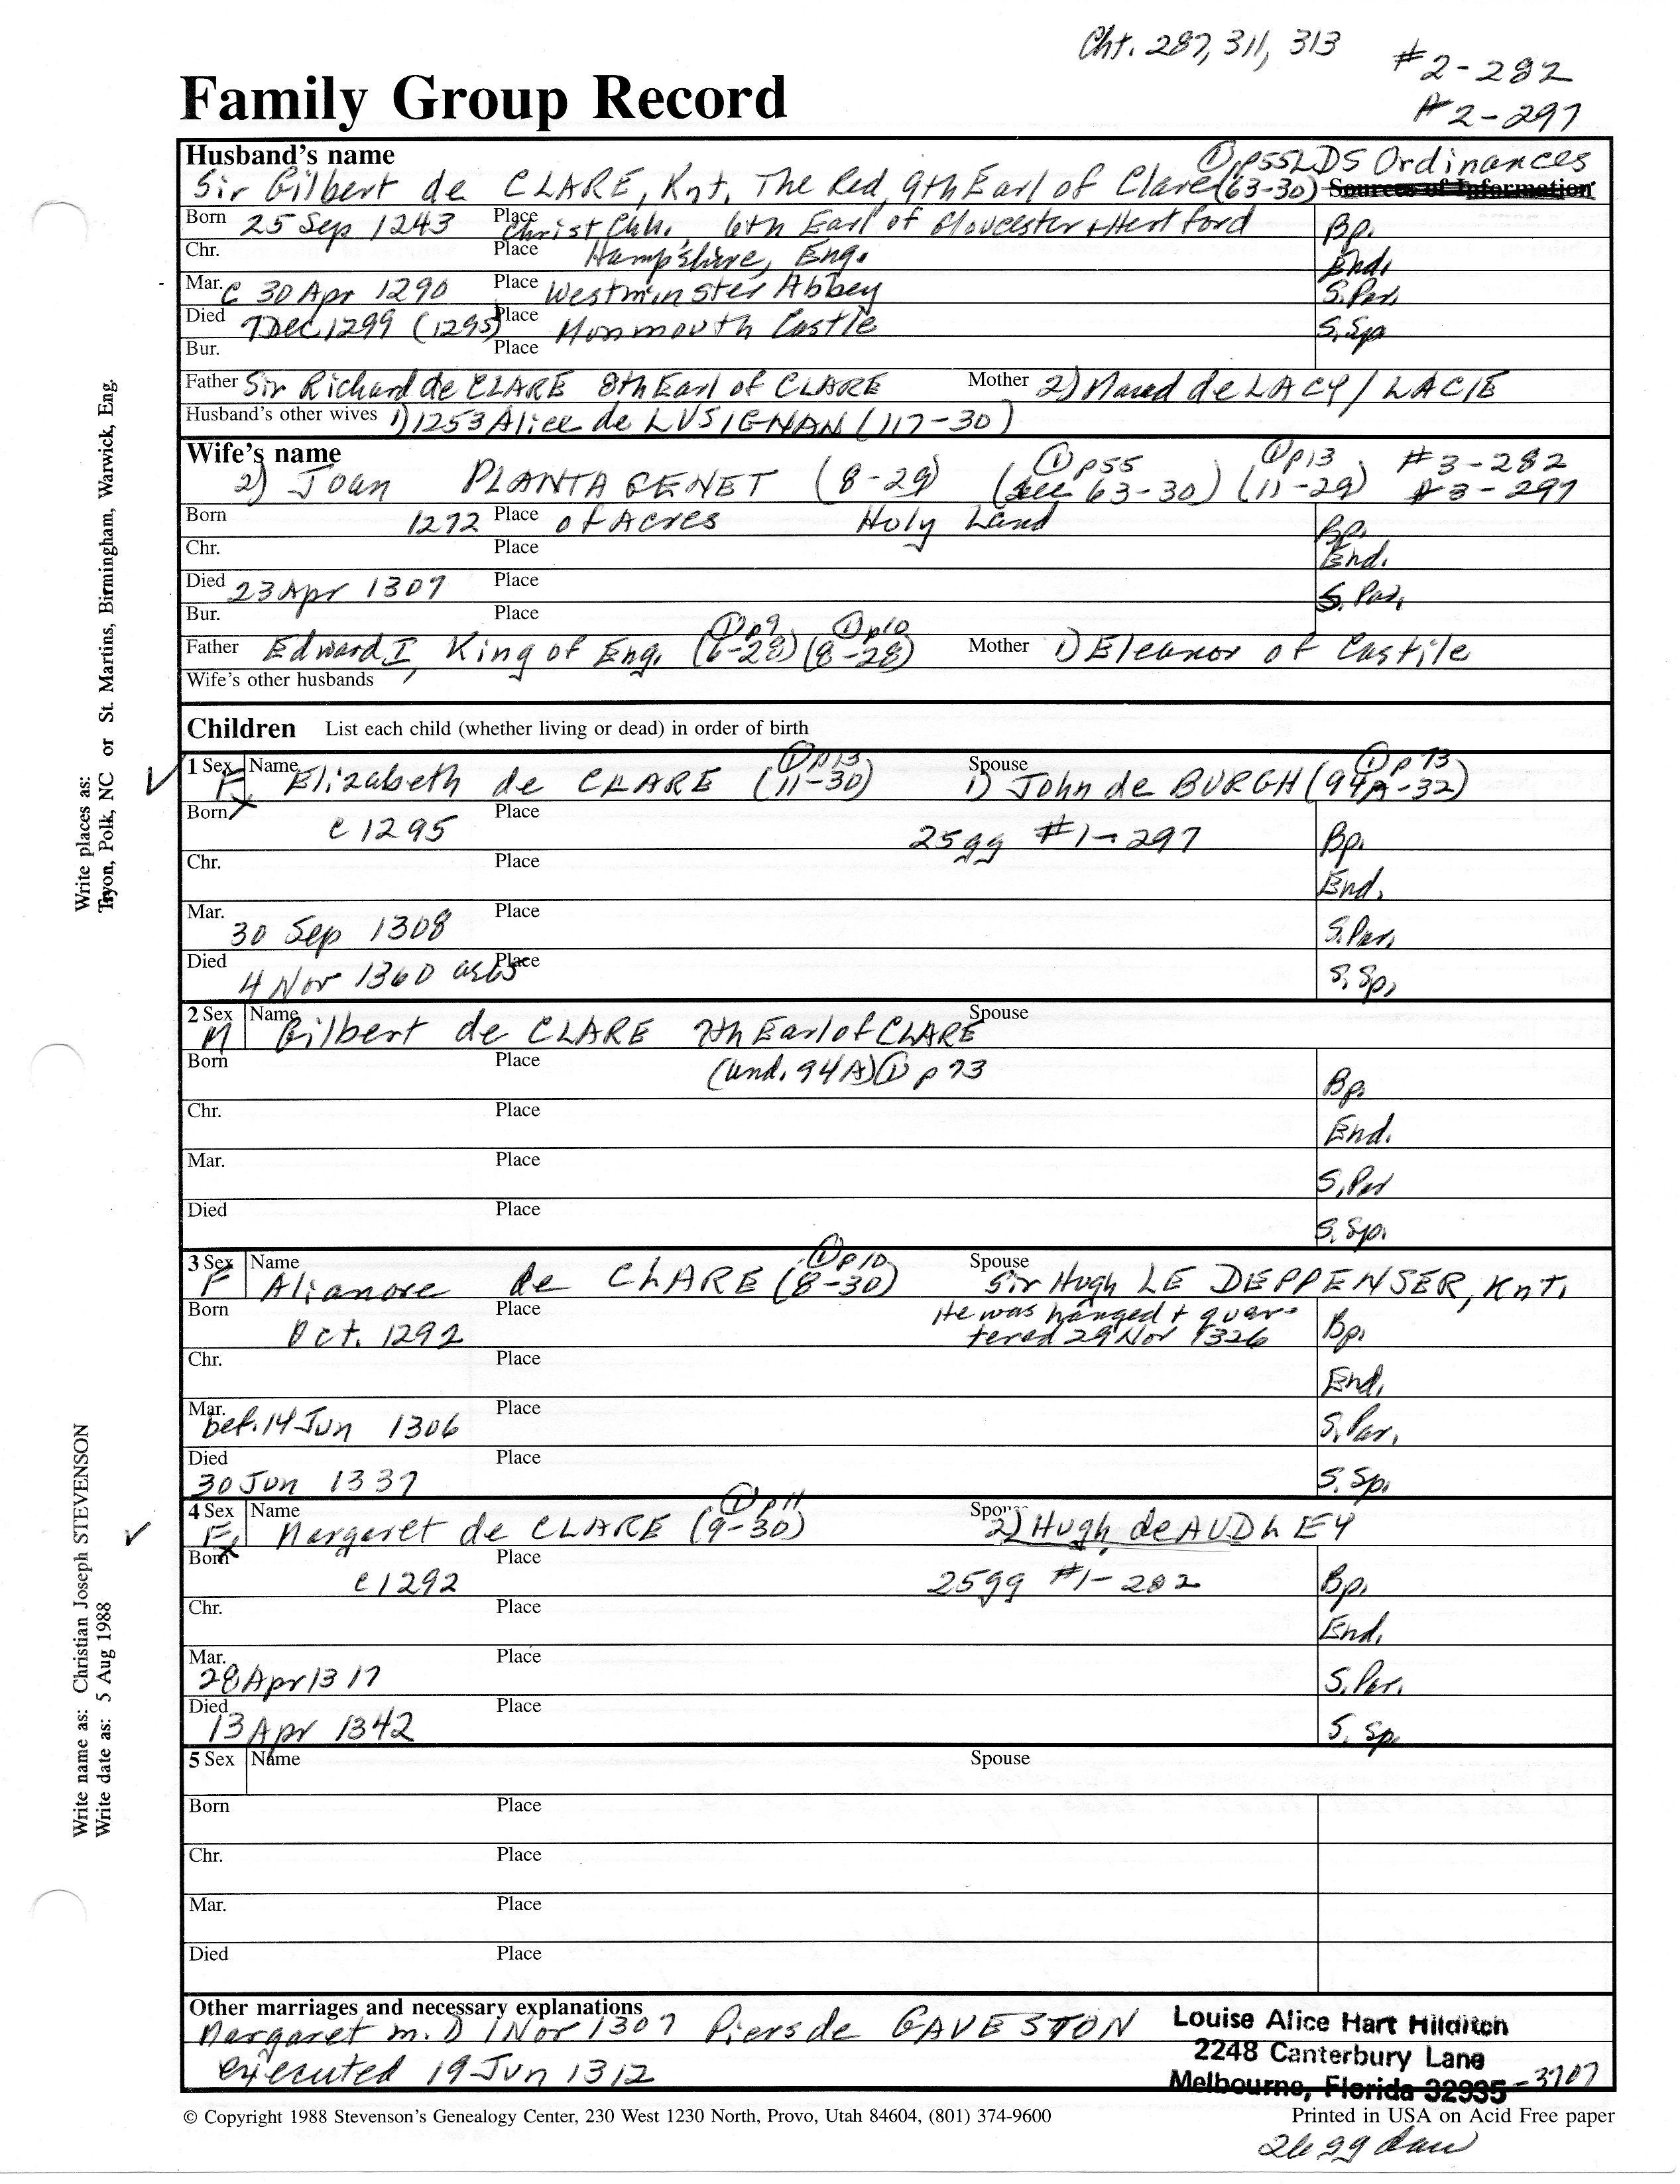 Cht. 287, 311, 313
#2-282
#2-297
Family Group Record
Husband's name
① p55 LDS Ordinances
Sir Gilbert de CLARE, Knt. The Red, 9th Earl of Clare (63-30) Sources of Information
Born 25 Sep 1243 Place Christ Chh. 6th Earl of Gloucester + Hertford Bp.
Chr. Place Hampshire, Eng. End.
Mar. C 30 Apr 1290 Place Westminster Abbey S.Par.
Died 7 Dec 1299 (1295) Place Monmouth Castle S.Sp
Bur. Place
Father Sir Richard de CLARE 8th Earl of CLARE Mother 2) Maud de LACY / LACIE
Husband's other wives 1) 1253 Alice de LUSIGNAN (117-30)
Wife's name ① p55 ① p13 #3-282
2) Joan PLANTAGENET (8-29) (see 63-30) (11-29) #3-297
Born 1272 Place of Acres Holy Land Bp.
Chr. Place End.
Died 23 Apr 1307 Place S. Par.
Bur. Place
① p9 ① p10
Father Edward I, King of Eng. (6-28) (8-28) Mother 1) Eleanor of Castile
Wife's other husbands
Children List each child (whether living or dead) in order of birth
① p13 ① p73
1 Sex F. Name Elizabeth de CLARE (11-30) Spouse 1) John de BURGH (94A-32)
Born c 1295 Place 25gg #1-297 Bp.
Chr. Place End.
Mar. 30 Sep 1308 Place S.Par.
Died 4 Nov 1360 Place S. Sp.
2 Sex M Name Gilbert de CLARE 7th Earl of CLARE Spouse
Born Place (und. 94A) ① p73 Bp.
Chr. Place End.
Mar. Place S.Par
Died Place S. Sp.
① p10
3 Sex F Name Alianore de CLARE (8-30) Spouse Sir Hugh LE DEPPENSER, Knt.
Born Oct. 1292 Place He was hanged + quar-
tered 29 Nov 1326 Bp.
Chr. Place End.
Mar. bef. 14 Jun 1306 Place S.Par.
Died 30 Jun 1337 Place S. Sp.
① p11
4 Sex F. Name Margaret de CLARE (9-30) Spouse 2) Hugh de AUDLEY
Born c 1292 Place 25gg #1-282 Bp.
Chr. Place End.
Mar. 28 Apr 1317 Place S.Par.
Died 13 Apr 1342 Place S. Sp.
5 Sex Name Spouse
Born Place
Chr. Place
Mar. Place
Died Place
Other marriages and necessary explanations
Margaret m. 1) 1 Nov 1307 Piers de GAVESTON
executed 19 Jun 1312
Louise Alice Hart Hilditch
2248 Canterbury Lane
Melbourne, Florida 32935 -3707
© Copyright 1988 Stevenson's Genealogy Center, 230 West 1230 North, Provo, Utah 84604, (801) 374-9600 Printed in USA on Acid Free paper
26 gg dau
Write places as:
Tryon, Polk, NC or St. Martins, Birmingham, Warwick, Eng.
Write name as: Christian Joseph STEVENSON
Write date as: 5 Aug 1988